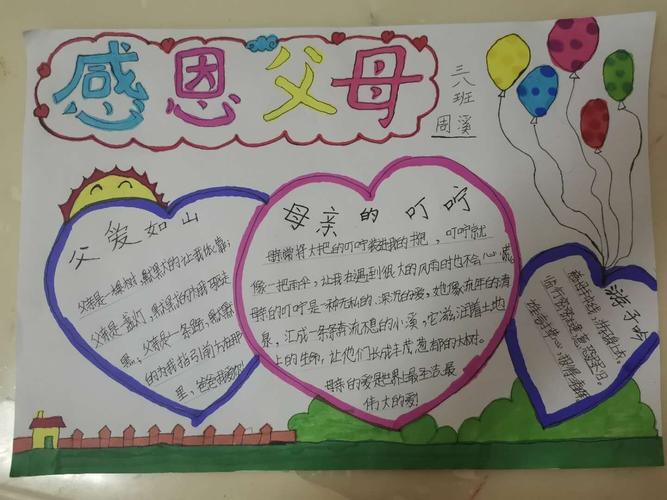 感恩父母
三八班
周溪
父爱如山
父亲是一棵树,默默的让我依靠;
父亲是盏灯,默默的为我驱走
黑,父亲是一条路,默默
的为我指引前方在那
里,爸爸我爱你!
母亲的叮咛
母亲常将大把的叮咛装进我的书包,叮咛就
像一把雨伞,让我在遇到很大的风雨时也不会心慌
母亲的叮咛是一种无私的、深沉的爱,她像流年的清
泉,汇成一条条奔流不息的小溪,它滋润着土地
上的生命,让他们长成丰茂葱郁的大树。
母亲的爱是世界上最圣洁、最
伟大的爱!
游子吟
慈母手中线,游子身上衣。
临行密密缝,意恐迟迟归。
谁言寸草心,报得三春晖